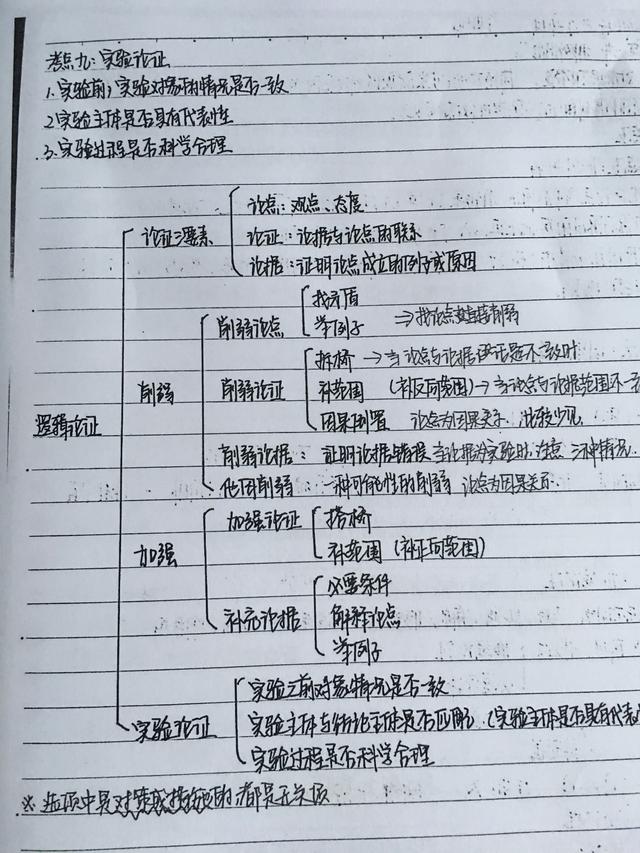 考点九:实验论证
1.实验前,实验对象的情况是否一致
2.实验主体是否具有代表性
3.实验过程是否科学合理
论点:观点、态度
论证三要素 论证:论据与论点的联系
论据:证明论点成立的例子或原因
找矛盾
削弱论点 举例子 ⇒找论点直接削弱
拆桥 → 当论点与论据话题不一致时
削弱 削弱论证 补范围 (补反向范围)→当论点与论据范围不一
因果倒置 论点为因果关系,比较少见
逻辑论证
削弱论据: 证明论据错误 当论据为实验时,注意三种情况
他因削弱: 一种可能性的削弱 论点为因果关系.
加强论证 搭桥
加强 补范围 (补正向范围)
必要条件
补充论据 解释论点
举例子
实验之前对象情况是否一致
实验论证 实验主体与结论主体是否匹配 (实验主体是否具有代表
实验过程是否科学合理
※ 选项中是对策或措施的都是无关项